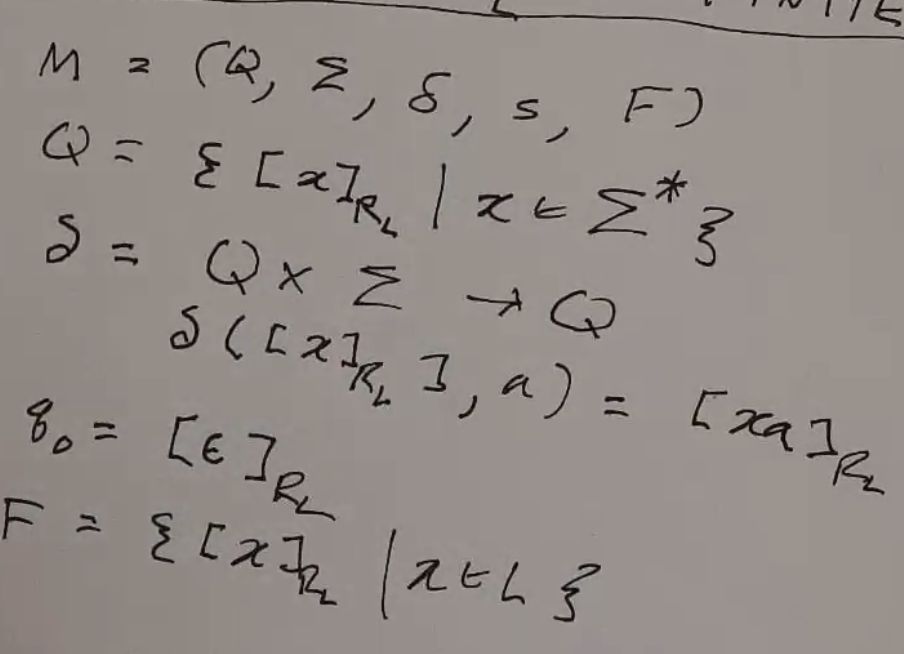 FINITE
M = (Q, Σ, δ, s, F)
Q = { [x]_{R_L} | x ∈ Σ* }
δ = Q × Σ → Q
δ([x]_{R_L}], a) = [xa]_{R_L}
q₀ = [ε]_{R_L}
F = { [x]_{R_L} | x ∈ L }